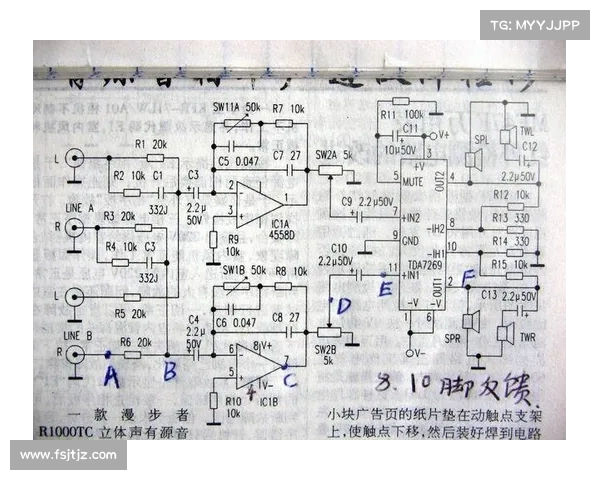 TG: MYYJJPP
SW11A 50k
R7 10k
R11 100k
C11
V+
10μ50V
SPL
TWL
C12
2.2μ50V
L
R1 20k
R2 10k
C1
332J
C3
2.2μ
50V
C5 0.047
C7 27
SW2A
5k
MUTE
OUT2
R12 10k
LINE A
R
R3 20k
R4 10k
C3
332J
2
3
1
IC1A
4558D
R9
10k
C9 2.2μ50V
7
+IN2
9
GND
-IH2
8
R13 330
R14 330
-IH1
10
R15 10k
C10
2.2μ50V
11
+IN1
TDA7269
OUT1
2
C13 2.2μ50V
L
R5 20k
SW1B 50k
R8 10k
C6 0.047
C8 27
C4
2.2μ
50V
LINE B
R
R6 20k
SW2B
5k
6
5
7
8
V+
V-
4
IC1B
R10
10k
-V
-V
1
6
SPR
TWR
A
B
C
D
E
F
8.10脚反馈.
一款漫步者
R1000TC 立体声有源音
小块广告页的纸片垫在动触点支架
上,使触点下移,然后装好焊到电路
www.fsjtjz.com